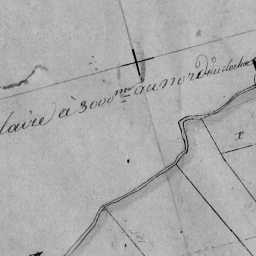 laire à 3000 m au nord du clocher